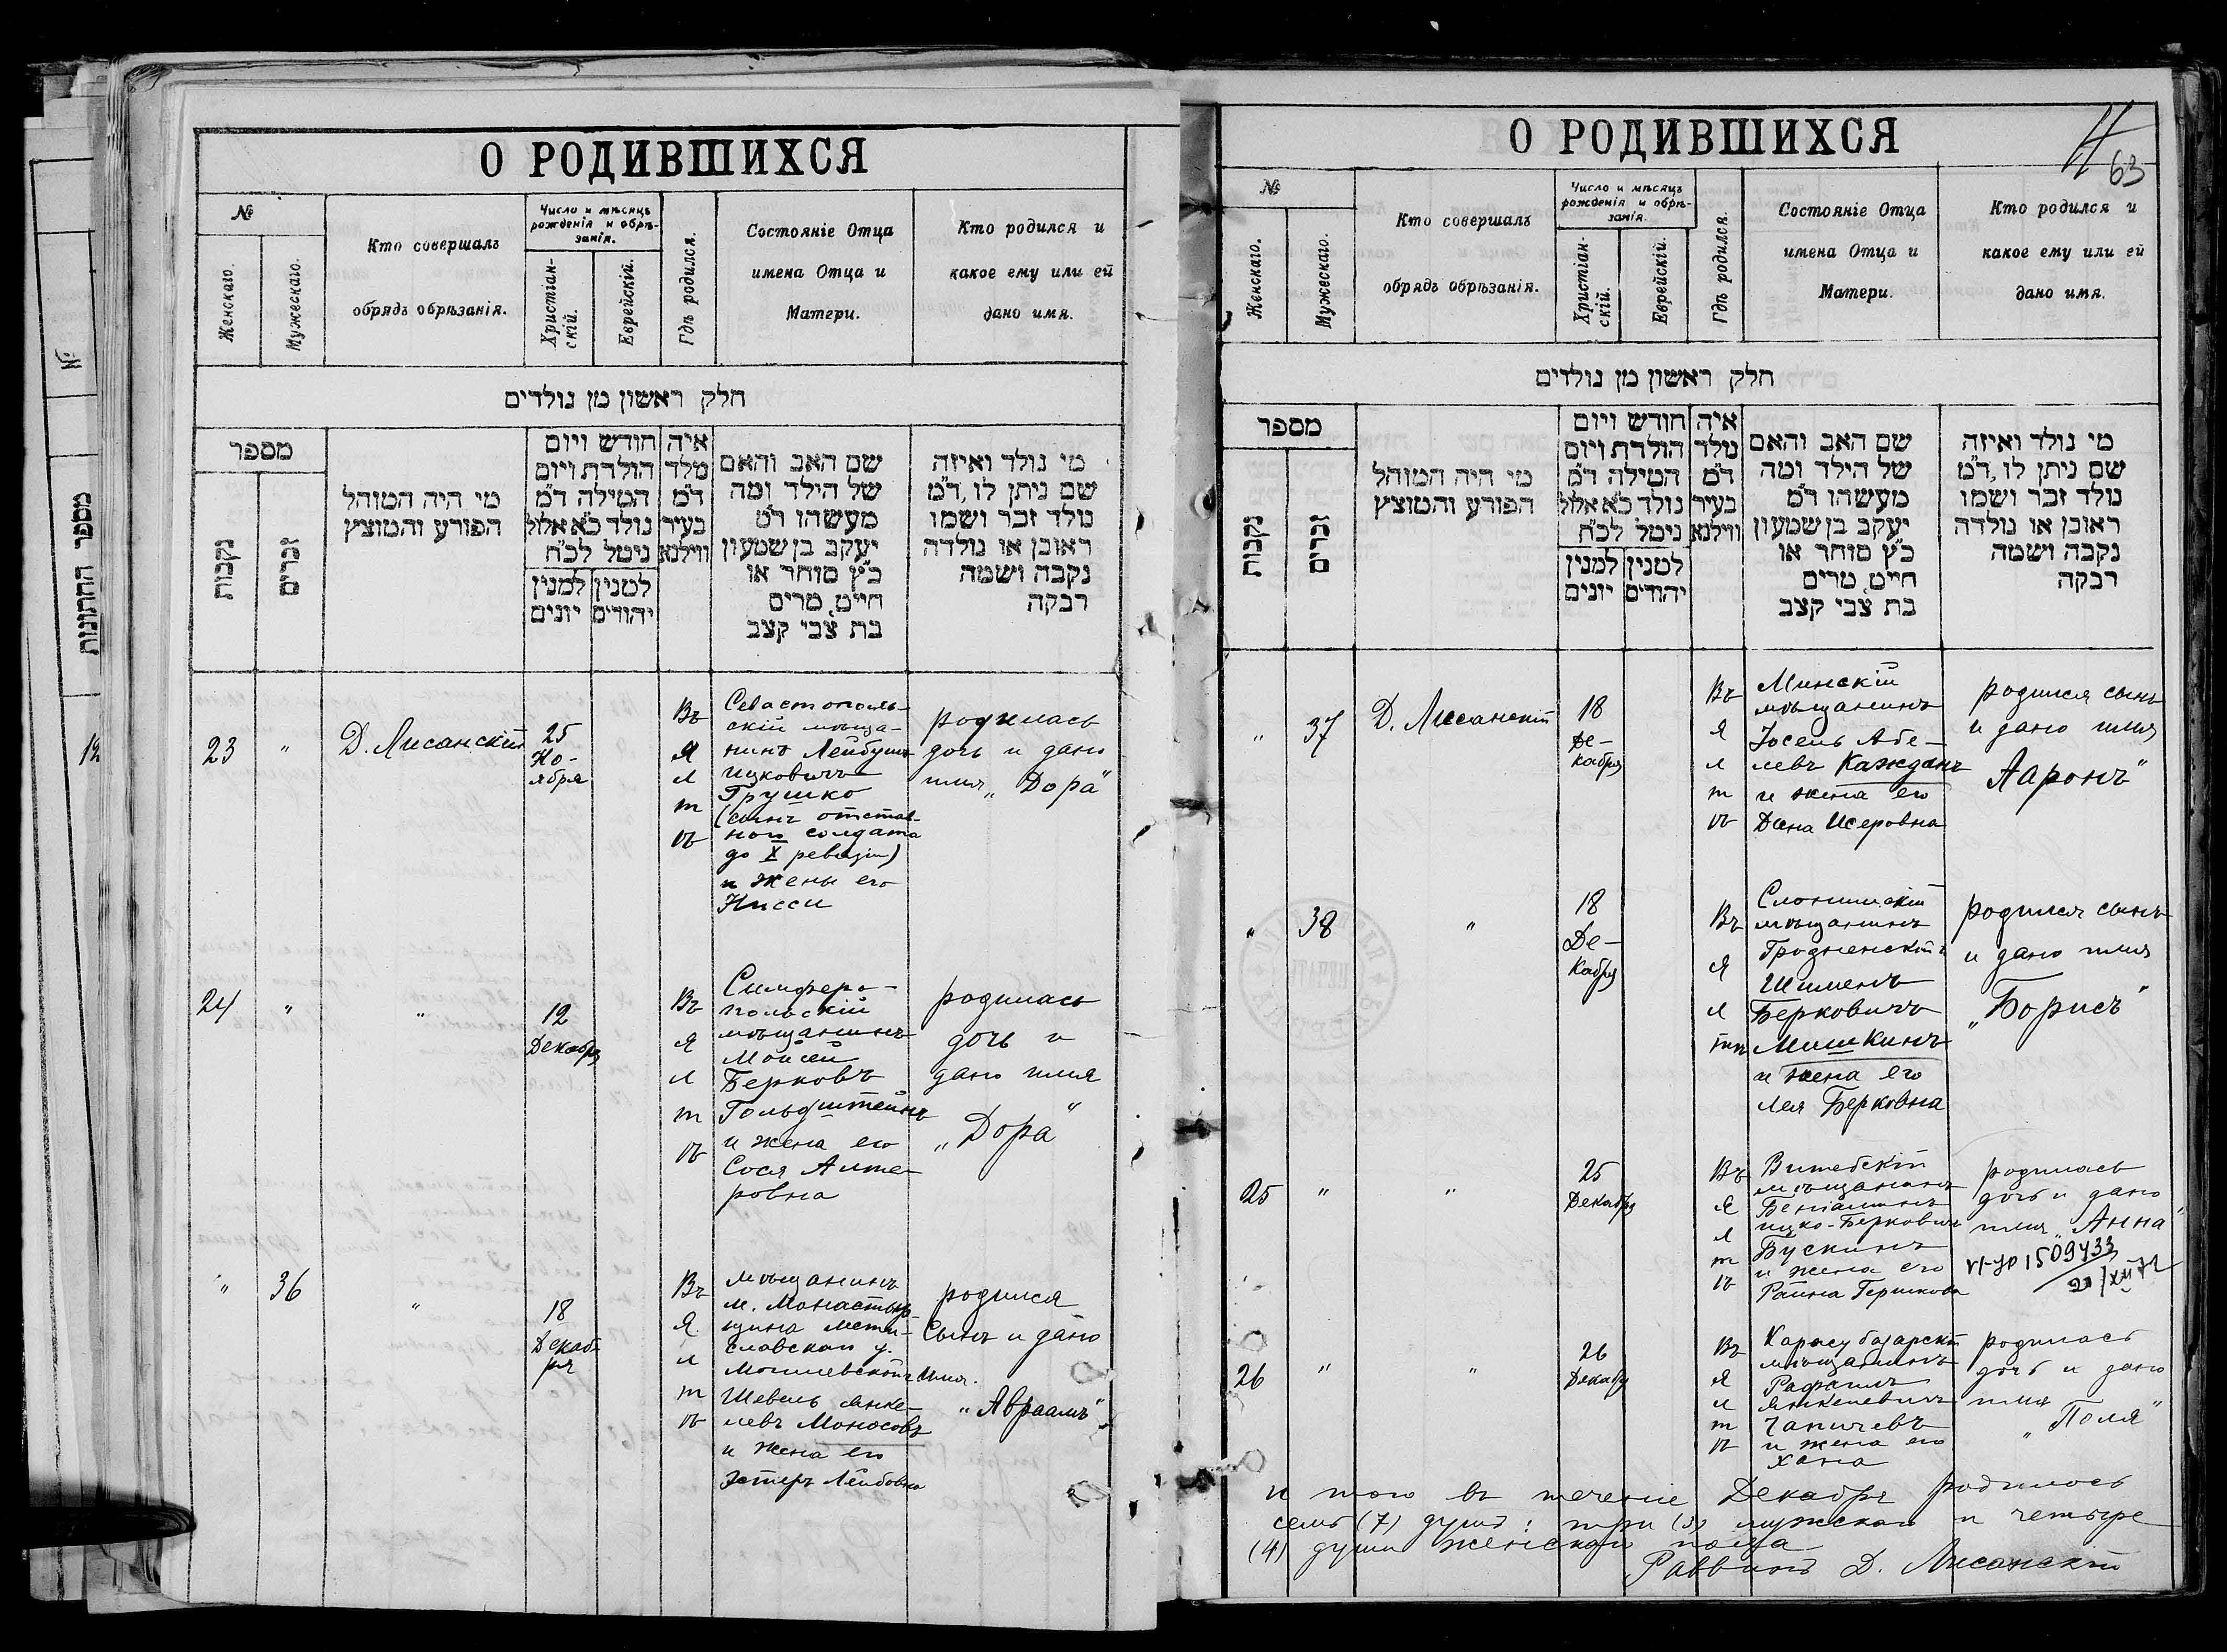 О РОДИВШИХСЯ
№
Женскаго.
Мужескаго.
Кто совершалъ
обрядъ обрѣзанія.
Число и мѣсяцъ
рожденія и обрѣ-
занія.
Христіан-
скій.
Еврейскій.
Гдѣ родился.
Состояніе Отца
имена Отца и
Матери.
Кто родился и
какое ему или ей
дано имя.
חלק ראשון מן נולדים
מספר
נקבות
זכרים
מי היה המוהל
הפורע והמוצץ
חודש ויום
הולדת ויום
המילה ד"מ
נולד כ"א אלול
ניטל לכ"ח
למנין יונים
למנין יהודים
איה
נולד
ד"מ
בעיר
ווילנא
שם האב והאם
של הילד ומה
מעשהו ד"מ
יעקב בן שמעון
כ"ץ סוחר או
חייט, מרים
בת צבי קצב
מי נולד ואיזה
שם ניתן לו, ד"מ
נולד זכר ושמו
ראובן או נולדה
נקבה ושמה
רבקה
23
"
Д. Лисанскій
25
Но-
ября
Въ
Я
л
т
ѣ
Севастополь-
скій мѣща-
нинъ Лейбушъ
Ицковичъ
Грушко
(сынъ отстав-
ного солдата
до X ревизіи)
и жены его
Нисси
родилась
дочь и дано
имя „Дора"
24
"
"
12
Декабря
Въ
Я
л
т
ѣ
Симферо-
польскій
мѣщанинъ
Мойсей
Берковъ
Гольдштейнъ
и жена его
Сося Алте-
ровна
родилась
дочь и
дано имя
„Дора"
"
36
"
18
Декаб-
ря
Въ
Я
л
т
ѣ
мѣщанинъ
м. Монастыр-
щина Мсти-
славскаго у.
Могилевской г.
Шевель Янке-
левъ Моносовъ
и жена его
Эстеръ Лейбовна
родился
Сынъ и дано
имя.
„Авраамъ"
О РОДИВШИХСЯ
63
№
Женскаго.
Мужескаго.
Кто совершалъ
обрядъ обрѣзанія.
Число и мѣсяцъ
рожденія и обрѣ-
занія.
Христіан-
скій.
Еврейскій.
Гдѣ родился.
Состояніе Отца
имена Отца и
Матери.
Кто родился и
какое ему или ей
дано имя.
חלק ראשון מן נולדים
מספר
נקבות
זכרים
מי היה המוהל
הפורע והמוצץ
חודש ויום
הולדת ויום
המילה ד"מ
נולד כ"א אלול
ניטל לכ"ח
למנין יונים
למנין יהודים
איה
נולד
ד"מ
בעיר
ווילנא
שם האב והאם
של הילד ומה
מעשהו ד"מ
יעקב בן שמעון
כ"ץ סוחר או
חייט, מרים
בת צבי קצב
מי נולד ואיזה
שם ניתן לו, ד"מ
נולד זכר ושמו
ראובן או נולדה
נקבה ושמה
רבקה
"
37
Д. Лисанскій
18
Де-
кабря
Въ
Я
л
т
ѣ
Минскій
мѣщанинъ
Іосель Абе-
левъ Кажданъ
и жена его
Дина Исеровна
родился сынъ
и дано имя
Ааронъ"
"
38
"
18
Де-
кабря
Въ
Я
л
тѣ
Слонимскій
мѣщанинъ
Гродненской г.
Шименъ
Берковичъ
Мишкинъ
и жена его
Лея Берковна
родился сынъ
и дано имя
„Борисъ"
25
"
"
25
Декабря
Въ
Я
л
т
ѣ
Витебскій
мѣщанинъ
Беніаминъ
Ицко-Берковичъ
Бускинъ
и жена его
Райна Гершкова
родилась
дочь и дано
имя „Анна"
1509433
26
"
"
26
Декабр
Въ
Я
л
т
ѣ
Карасубазарскій
мѣщанинъ
Рафаилъ
Янкелевичъ
Чапичевъ
и жена его
Хана
родилась
дочь и дано
имя
„Поля"
Итого въ теченіе Декабря родилось
семь (7) душъ: три (3) мужскаго и четыре
(4) души женскаго пола
Раввинъ Д. Лисанскій
מספר החתונות
№
12